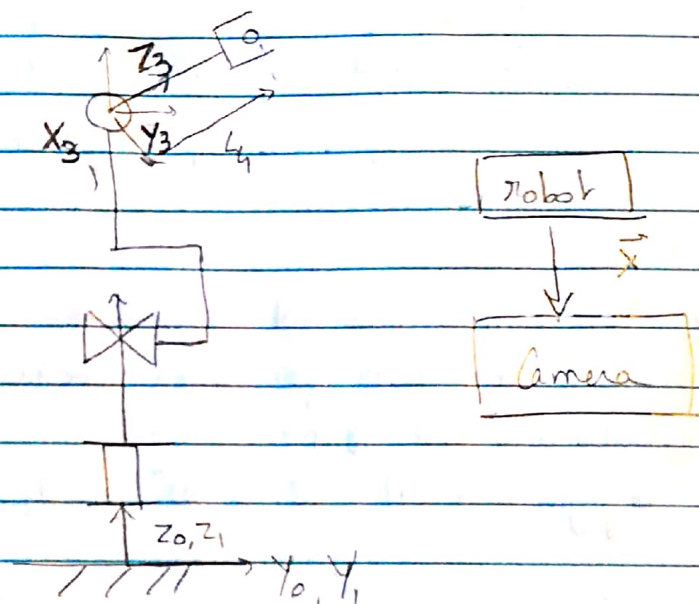 Z3
X3
Y3
L4
robot
X
Camera
Z0, Z1
Y0, Y1